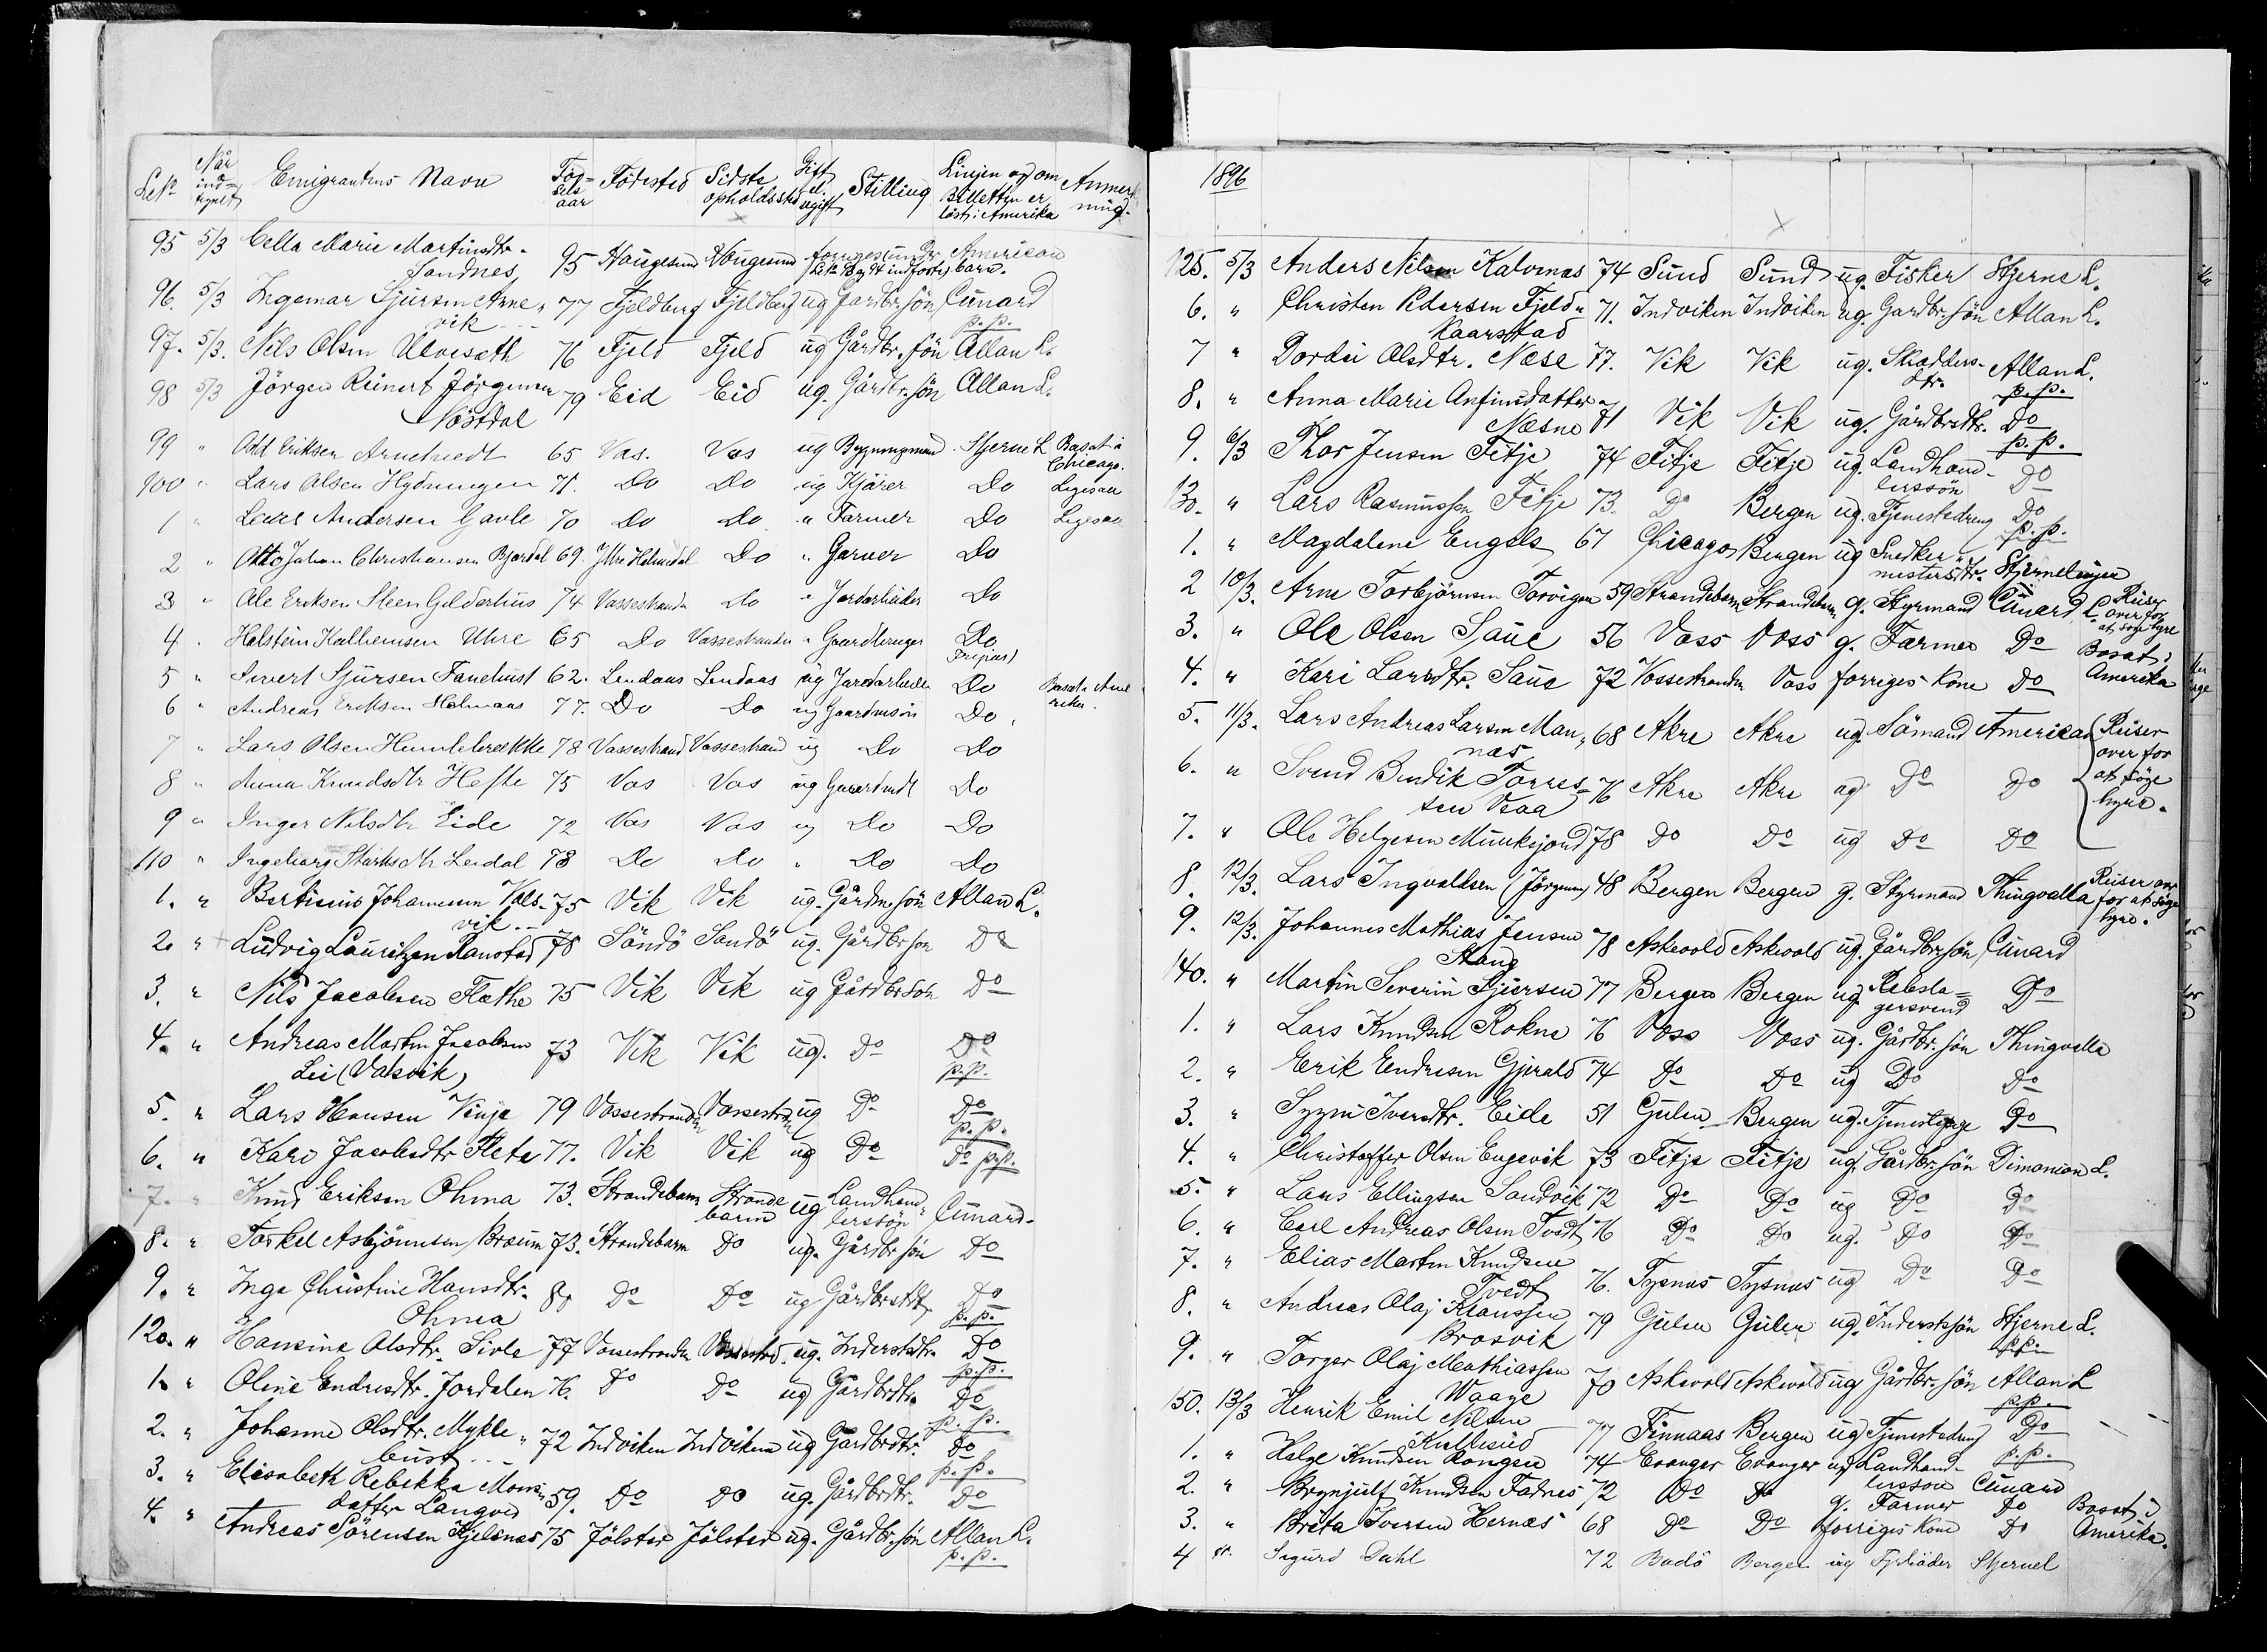 Lb№ Når ind-tegnet Emigrantens Navn Fød-sels aar Födested Sidste opholdssted Gift el. ugift Stilling Linjen og om Billetten er löst i Amerika Anmerkning
95 5/3 Cella Marie Martinsdtr. 95 Haugesund Haugesund forriges under American
Sandnes (Lb№ 93 og 94 indförte) barn.
96. 5/3 Ingemar Sjursen Arne„ 77 Fjeldberg Fjeldberg ug Gardbr.sön Cunard
vik p.p.
97. 5/3. Nils Olsen Ulvesæth 76 Fjeld Fjeld ug Gårdbr.sön Allan L.
98 5/3 Jörgen Reinert Jörgensen 79 Eid Eid ug. Gårdbr.sön Allan L.
Nöstdal
99 " Odd Eriksen Arnetvedt 65 Vos. Vos ug Bygningsmand Stjerne L Bosat i
Chicago.
100 " Lars Olsen Hydnungen 71. Do Do ug Kjörer Do Ligesaa
1 " Lewis Andersen Gavle 70 Do Do " Farmer Do Ligesaa
2 " Otto Johan Christiansen Bjordal 69. Ytre Holmedal Do " Garver Do
3 " Ole Eriksen Steen Gilderhus 74 Vossestrand Do " Jordarbeider Do
4 " Holstein Kolbeinsen Uhre 65 Do Vossestranden " Gaardbruger Do
5 " Sivert Sjursen Fanehust 62. Lindaas Lindaas ug Jordarbeider Do Bosat i Ame
rika.
6 " Andreas Eriksen Holmaas 77. Do Do ug Gaardmsön Do
7 " Lars Olsen Humlebrekke 78 Vossestrand Vossestrand ug Do Do
8 " Anna Knudsdtr Hefte 75 Vos Vos ug Do
9 " Inger Nilsdtr Eide 72 Vos Vos ug Do Do
110 " Ingeborg Leidal 78 Do Do " Do Do
1. " Bertinius Johannesen Vals- 75 Vik Vik ug. Gårdm.sön Allan L.
vik
2. " Ludvig Lauritzen Ranstad 78 Söndö Sandö ug. Gårdbr son Do
3. " Nils Jacobsen Flæthe 75 Vik Vik ug Gårdbr sön Do
4. " Andreas Martin Jacobsen 73 Vik Vik ug. Do Do
Lei (Valsvik) p.p.
5. " Lars Hansen Vinje 79 Vossestranden Vossestranden ug Do Do
p.p.
6. " Kari Jacobsdtr Flete 77. Vik Vik ug Do Do p.p.
7. " Knud Eriksen Ohma 73. Strandebarm Strande ug Landhand„ Cunard
barm lerssön
8. " Torkel Asbjörnsen Braum 73. Strandebarm Do ug. Gårdbr sön Do
9. " Inga Christine Hansdtr. 80 Do Do ug Gårdbrsdtr. Do
Ohma p.p.
120. " Hansine Olsdtr. Sivle 77 Vossestranden Vossestrd. ug. Inderstdtr. Do
p.p.
1. " Oline Endresdtr. Jordalen 76. Do Do ug Gårdbrdtr. Do
p.p.
2. " Johanne Olsdtr. Mykle„ 72 Indviken Indviken ug Gårdbrdtr. Do
bust p.p.
3. " Elisabeth Rebekka Mons„ 59. Do Do ug. Gårdbrdtr. Do
datter Langved
4. " Andreas Sörensen Kjelsnæs 75 Jölster Jölster ug. Gårdbr.sön Allan L.
p.p.
1896
125. 5/3 Anders Nilsen Kalvenes 74 Sund Sund ug. Fisker Stjerne L.
6. " Christen Pedersen Fjeld„ 71. Indviken Indviken ug. Gardbr.sön Allan L.
Kaarstad
7 " Dordei Olsdtr. Næse 77. Vik Vik ug. Skrædders- Allan L.
dtr. p.p.
8. " Anna Marie Anfinsdatter 71 Vik Vik ug. Gårdbrdtr. Do
Næsne p.p.
9. 6/3 Thor Jensen Fitje 74 Fitje Fitje ug. Landhand- Do
lerssön
130. " Lars Rasmussen Fitje 73. Do Bergen ug. Tjenestedreng Do
p.p.
1. " Magdalene Engels 67 Chicago Bergen ug Snedker„ Stjernelinjen
mestersdtr.
2 10/3. Arne Torbjörnsen Torvigen 59 Strandebarm Strandebarm g. Styrmand Cunard L. Reiser
over for
at söge hyre
3. " Ole Olsen Saue 56 Voss Voss g. Farmer Do Bosat i
4. " Kari Larsdtr. Saue 72 Vossestranden Voss forriges kone Do Amerika
5. 11/3. Lars Andreas Larsen Man„ 68 Akre Akre ug. Sömand American Reiser
nes over for
6. " Svend Bendik Torres- 76 Akre Akre ug Do Do at söge
sen Vaa hyre.
7. " Ole Helgesen Munkejord 78 Do Do ug Do Do
8. 12/3. Lars Ingvaldsen (Jörgensen) 48 Bergen Bergen g. Styrmand Thingvalla Reiser over
for at söge
hyre.
9. 12/3. Johannes Mathias Jensen 78 Askevold Askevold ug. Gårdbr.sön Cunard
Stang
140. " Martin Severin Sjursen 77 Bergen Bergen ug. Rebsla= Do
gersvend
1. " Lars Knudsen Rokne 76 Voss Voss ug. Gårdbr.sön Thingvalla
2. " Erik Endresen Gjerald 74 Do Do ug Do Do
3. " Sygni Iversdtr. Eide 51 Gulen Bergen ug. Tjenestepige Do
4. " Christoffer Olsen Engevik 73 Fitje Fitje ug. Gårdbr.sön Dimonion L.
5. " Lars Ellingsen Sandvik 72 Do Do ug Do Do
6. " Carl Andreas Olsen Tvedt 76 Do Do ug. Do Do
7. " Elias Martin Knudsen 76. Tysnes Tysnes ug Do Do
Tvedt
8. " Andreas Olaj Klaussen 79 Gulen Gulen ug. Inderstsön Stjerne L.
Brosvik p.p.
9. " Torger Olaj Mathiassen 70 Askevold Askevold ug Gårdbr.sön Allan L
Waage p.p.
150. 13/3 Henrik Emil Nilsen 77 Finnaas Bergen ug Tjenestedreng Do
Kulleseid p.p.
1. " Helge Knudsen Rongen 74 Evanger Evanger ug Landhand- Cunard
lersson
2. " Brynjulf Knudsen Fadnes 72 Do Do g. Farmer Do Bosat i
3. " Brita Iversen Hernæs 68 Do Do forriges kone Do Amerika.
4 Sigurd Dahl 72 Bodö Bergen ug Stjernel